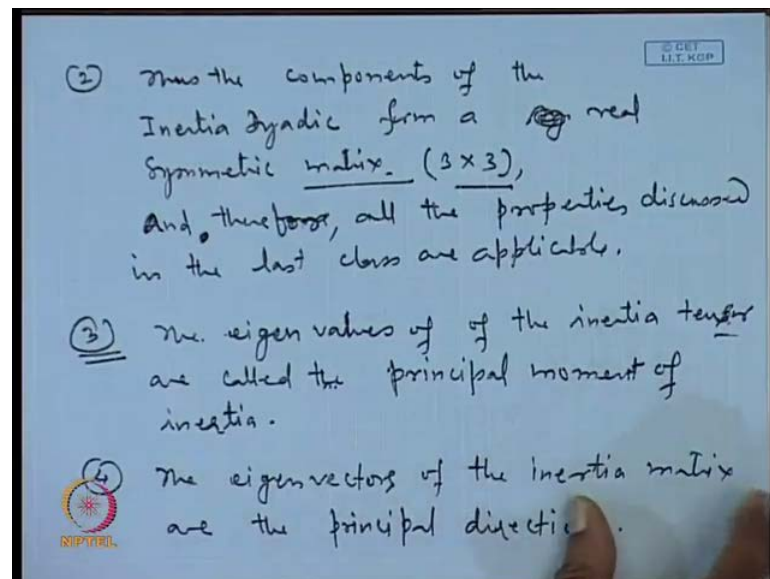 © CET
I.I.T. KGP
(2) Thus the components of the
Inertia Dyadic form a real
Symmetric matrix. (3 x 3),
And, therefore, all the properties discussed
in the last class are applicable.
(3) The eigen values of of the inertia tensor
are called the principal moment of
inertia.
(4) The eigenvectors of the inertia matrix
are the principal directi .
NPTEL